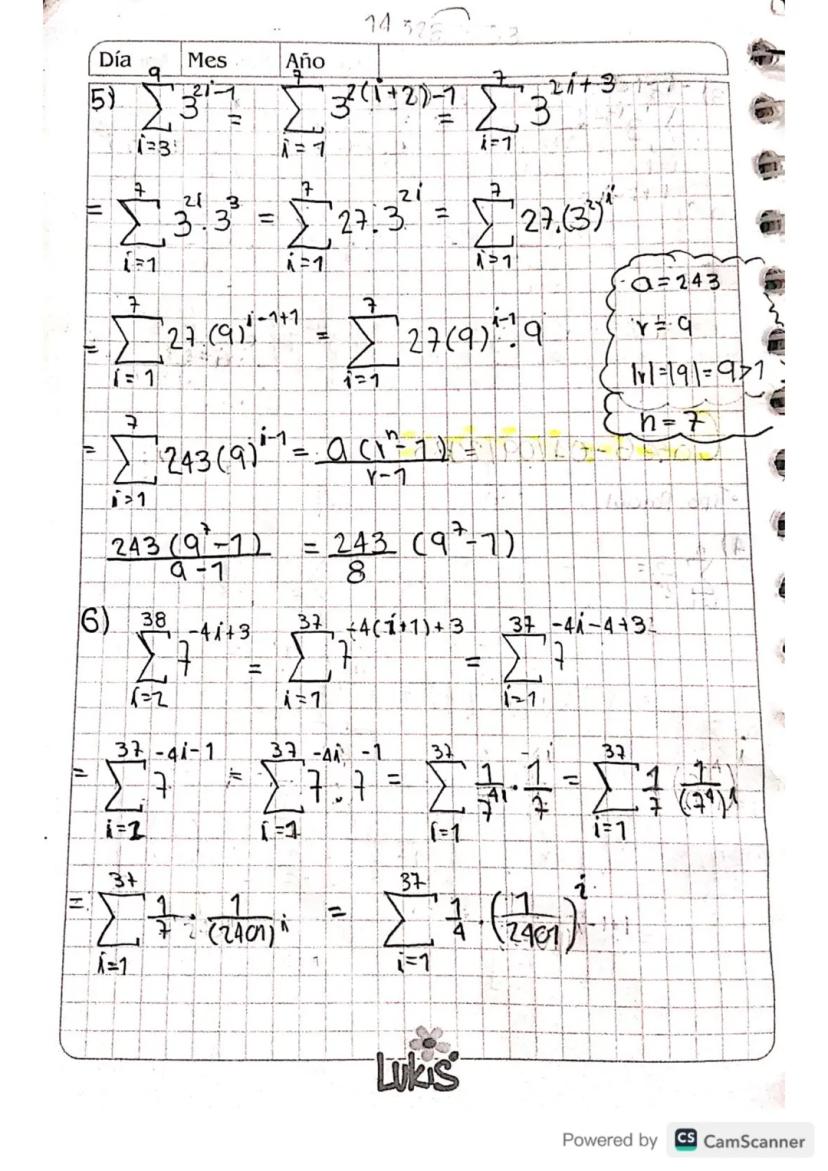 Día Mes Año
5) \sum_{i=3}^{9} 3^{2i-1} = \sum_{i=1}^{7} 3^{2(i+2)-1} = \sum_{i=1}^{7} 3^{2i+3}
= \sum_{i=1}^{7} 3^{2i} . 3^{3} = \sum_{i=1}^{7} 27 . 3^{2i} = \sum_{i=1}^{7} 27.(3^{2})^{i}
a = 243
r = 9
|r|=|9|=9>1
n = 7
= \sum_{i=1}^{7} 27 (9)^{i-1+1} = \sum_{i=1}^{7} 27(9)^{i-1} . 9
= \sum_{i=1}^{7} 243(9)^{i-1} = \frac{a(r^{n}-1)}{r-1} =
\frac{243(9^{7}-1)}{9-1} = \frac{243}{8} (9^{7}-1)
6) \sum_{i=2}^{38} 7^{-4i+3} = \sum_{i=1}^{37} 7^{-4(i+1)+3} = \sum_{i=1}^{37} 7^{-4i-4+3}
= \sum_{i=1}^{37} 7^{-4i-1} = \sum_{i=1}^{37} 7^{-4i} . 7^{-1} = \sum_{i=1}^{37} \frac{1}{7^{4i}} . \frac{1}{7} = \sum_{i=1}^{37} \frac{1}{7} \frac{1}{(7^{4})^{i}}
= \sum_{i=1}^{37} \frac{1}{7} . \frac{1}{(2401)^{i}} = \sum_{i=1}^{37} \frac{1}{4} . (\frac{1}{2401})^{i}
LUKIS
Powered by CS CamScanner